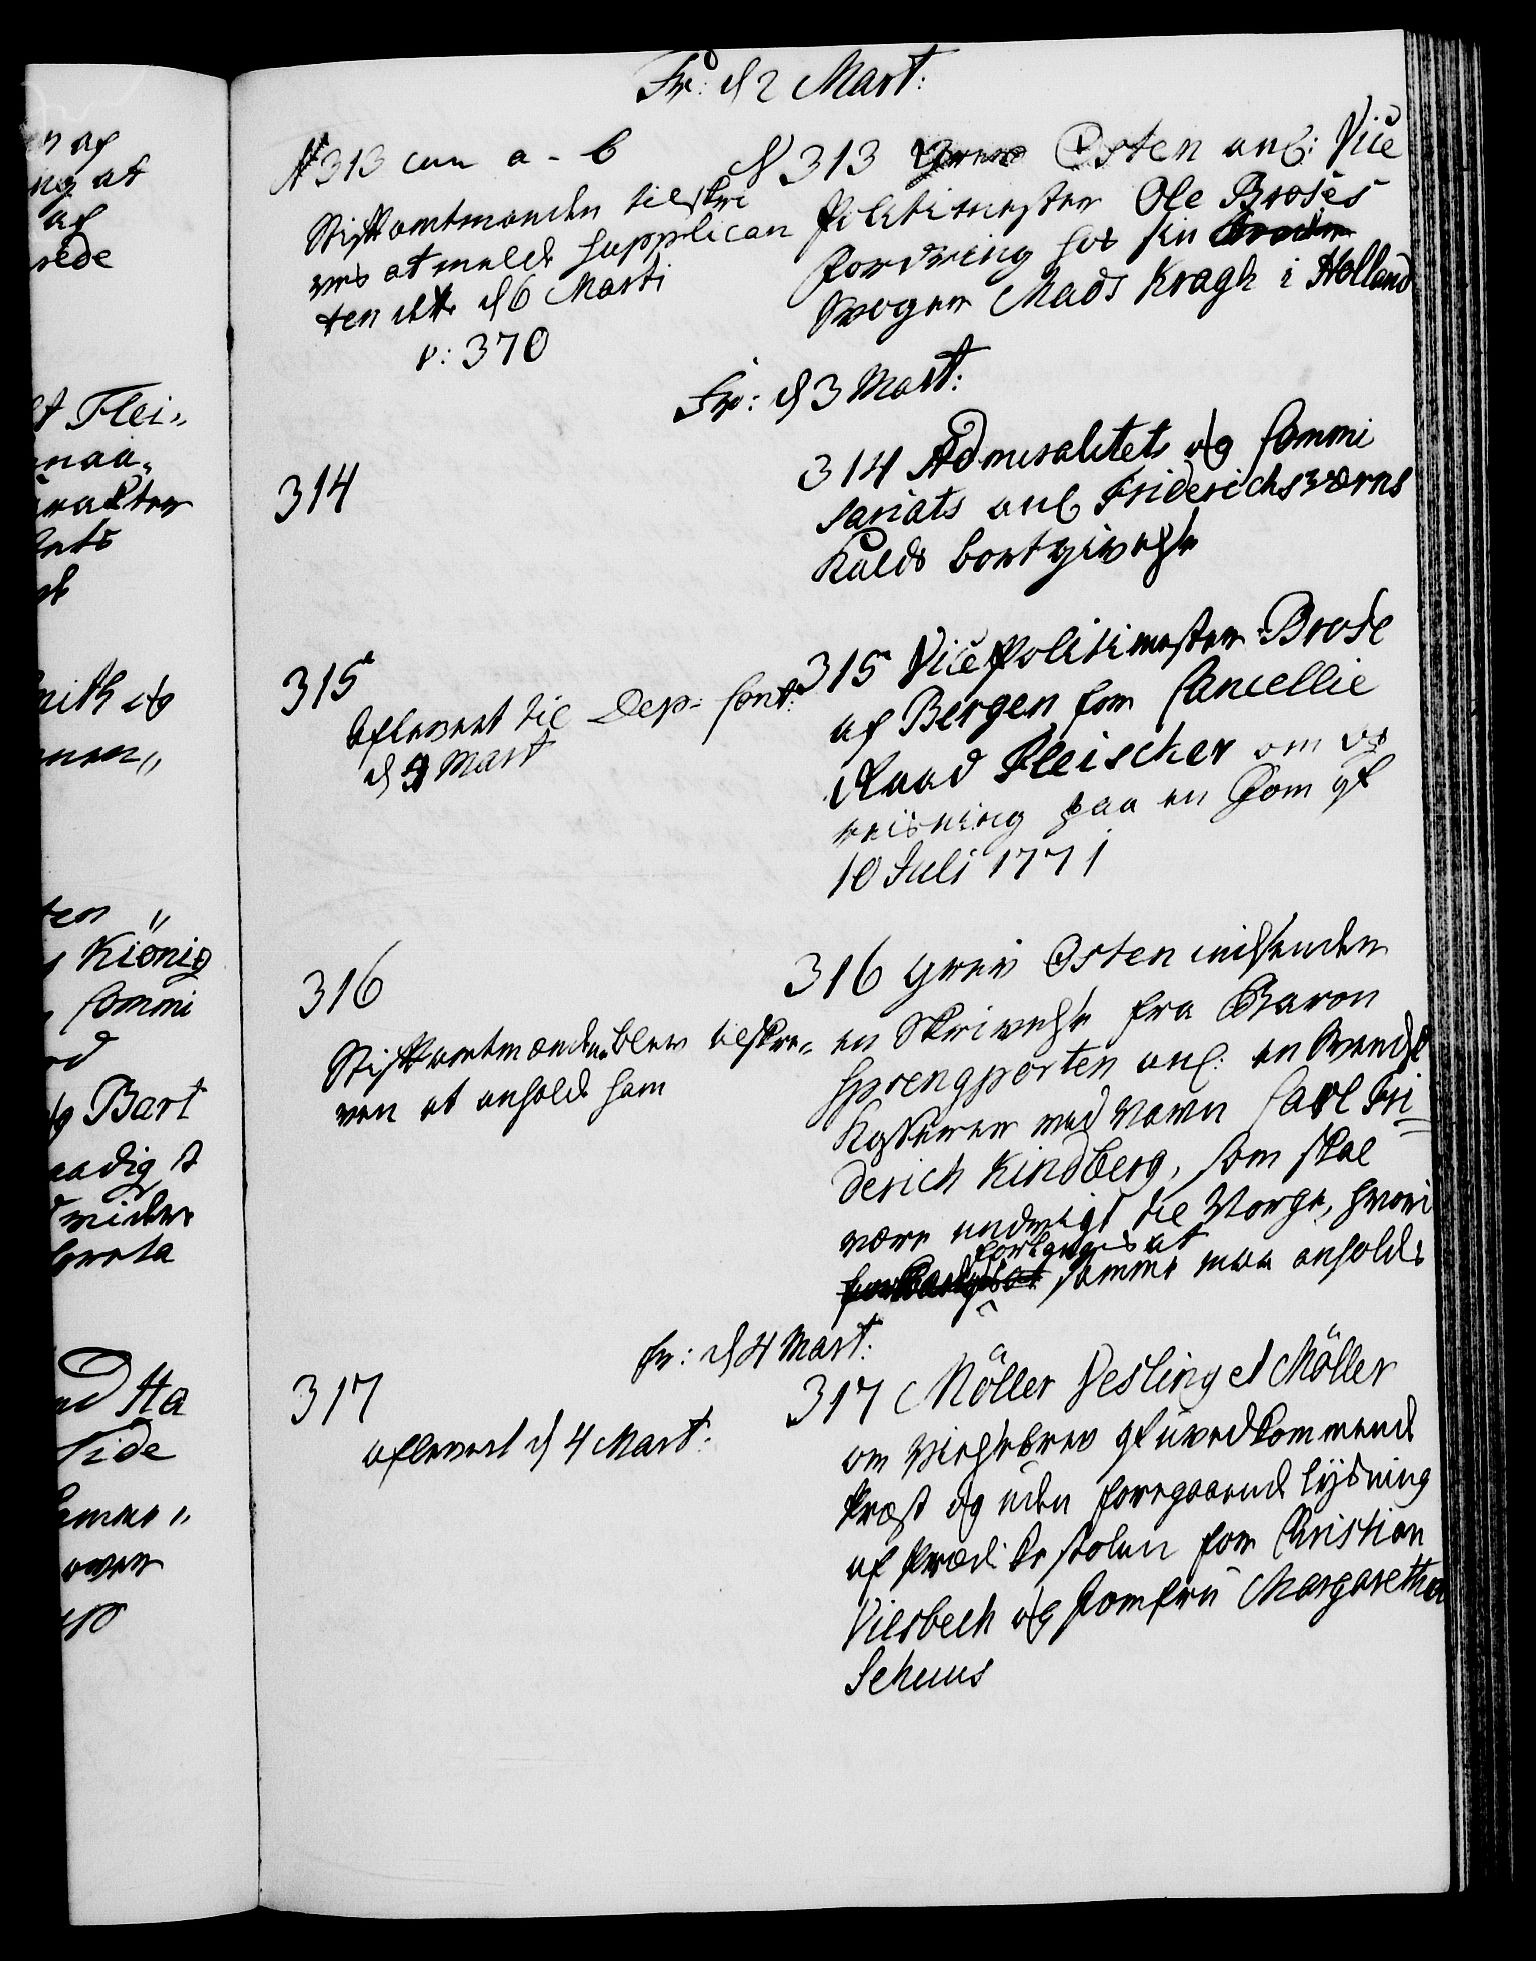 Fr: d 2 Mart:
N 313 cum a - b
Stiftamtmanden tilskri
ves at melde Supplican
ten etc d 6 Marti
p: 370
N 313 Grev Osten anl: Vice
Politimester Ole Broses
Fordring hos sin Broder
Svoger Mads Kragh i Holland
Fr: d 3 Mart:
314
314 Admiralitets og Commi
sariats anl Friderichsværns
Kalds bortgivelse
315
Afleveret til Dep: Cont:
d 4 Mart
315 Vice Politimester Brose
af Bergen for Cancellie
Raad Fleischer om op
reisning paa en Dom af
10 Juli 1771
316
Stiftamtmanden blev tilskre„
ven at anholde ham
316 Grev Osten indsender
en Skrivelse fra Baron
Sprengporten anl: en Svensk
Kasserer ved Navn Carl Fri
derich Kindberg, som skal
være undvigt til Norge, hvori
forlanges at
samme maa anholdes
Fr: d 4 Mart:
317
afleveret d 4 Mart:
317 Möller Desling et Möller
om Vielsebrev af uvedkommende
Præst og uden foregaaende lysning
af Prædikestolen for Christian
Vilsbech og Jomfru Margaretha
Schuus
en af
ing at
af
rede
Flei„
naa„
og
nen„
ten „
Kiönig
Commi
Bart
aadigst
Ha
Tide
over